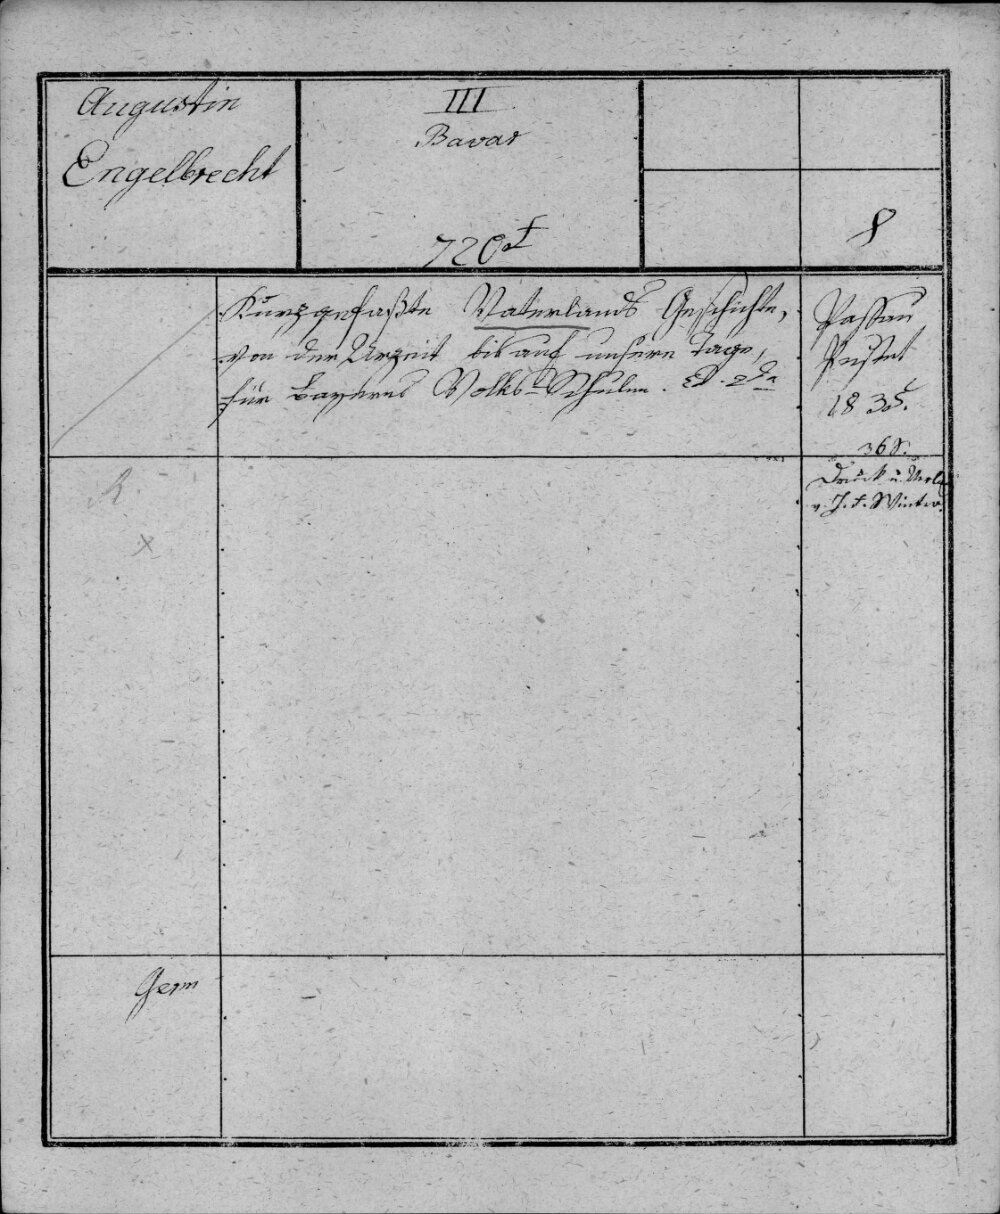 Augustin
Engelbrecht
III
Bavar
720
8
Kurzgefaßte Vaterlands Geschichte,
von der Urzeit bis auf unsere Tage,
für Bayerns Volks-Schulen. Ed. 2da
Passau
Pustet
1835.
36 S.
Druck u. Verlg
v. J. F. Winter.
R
x
Germ